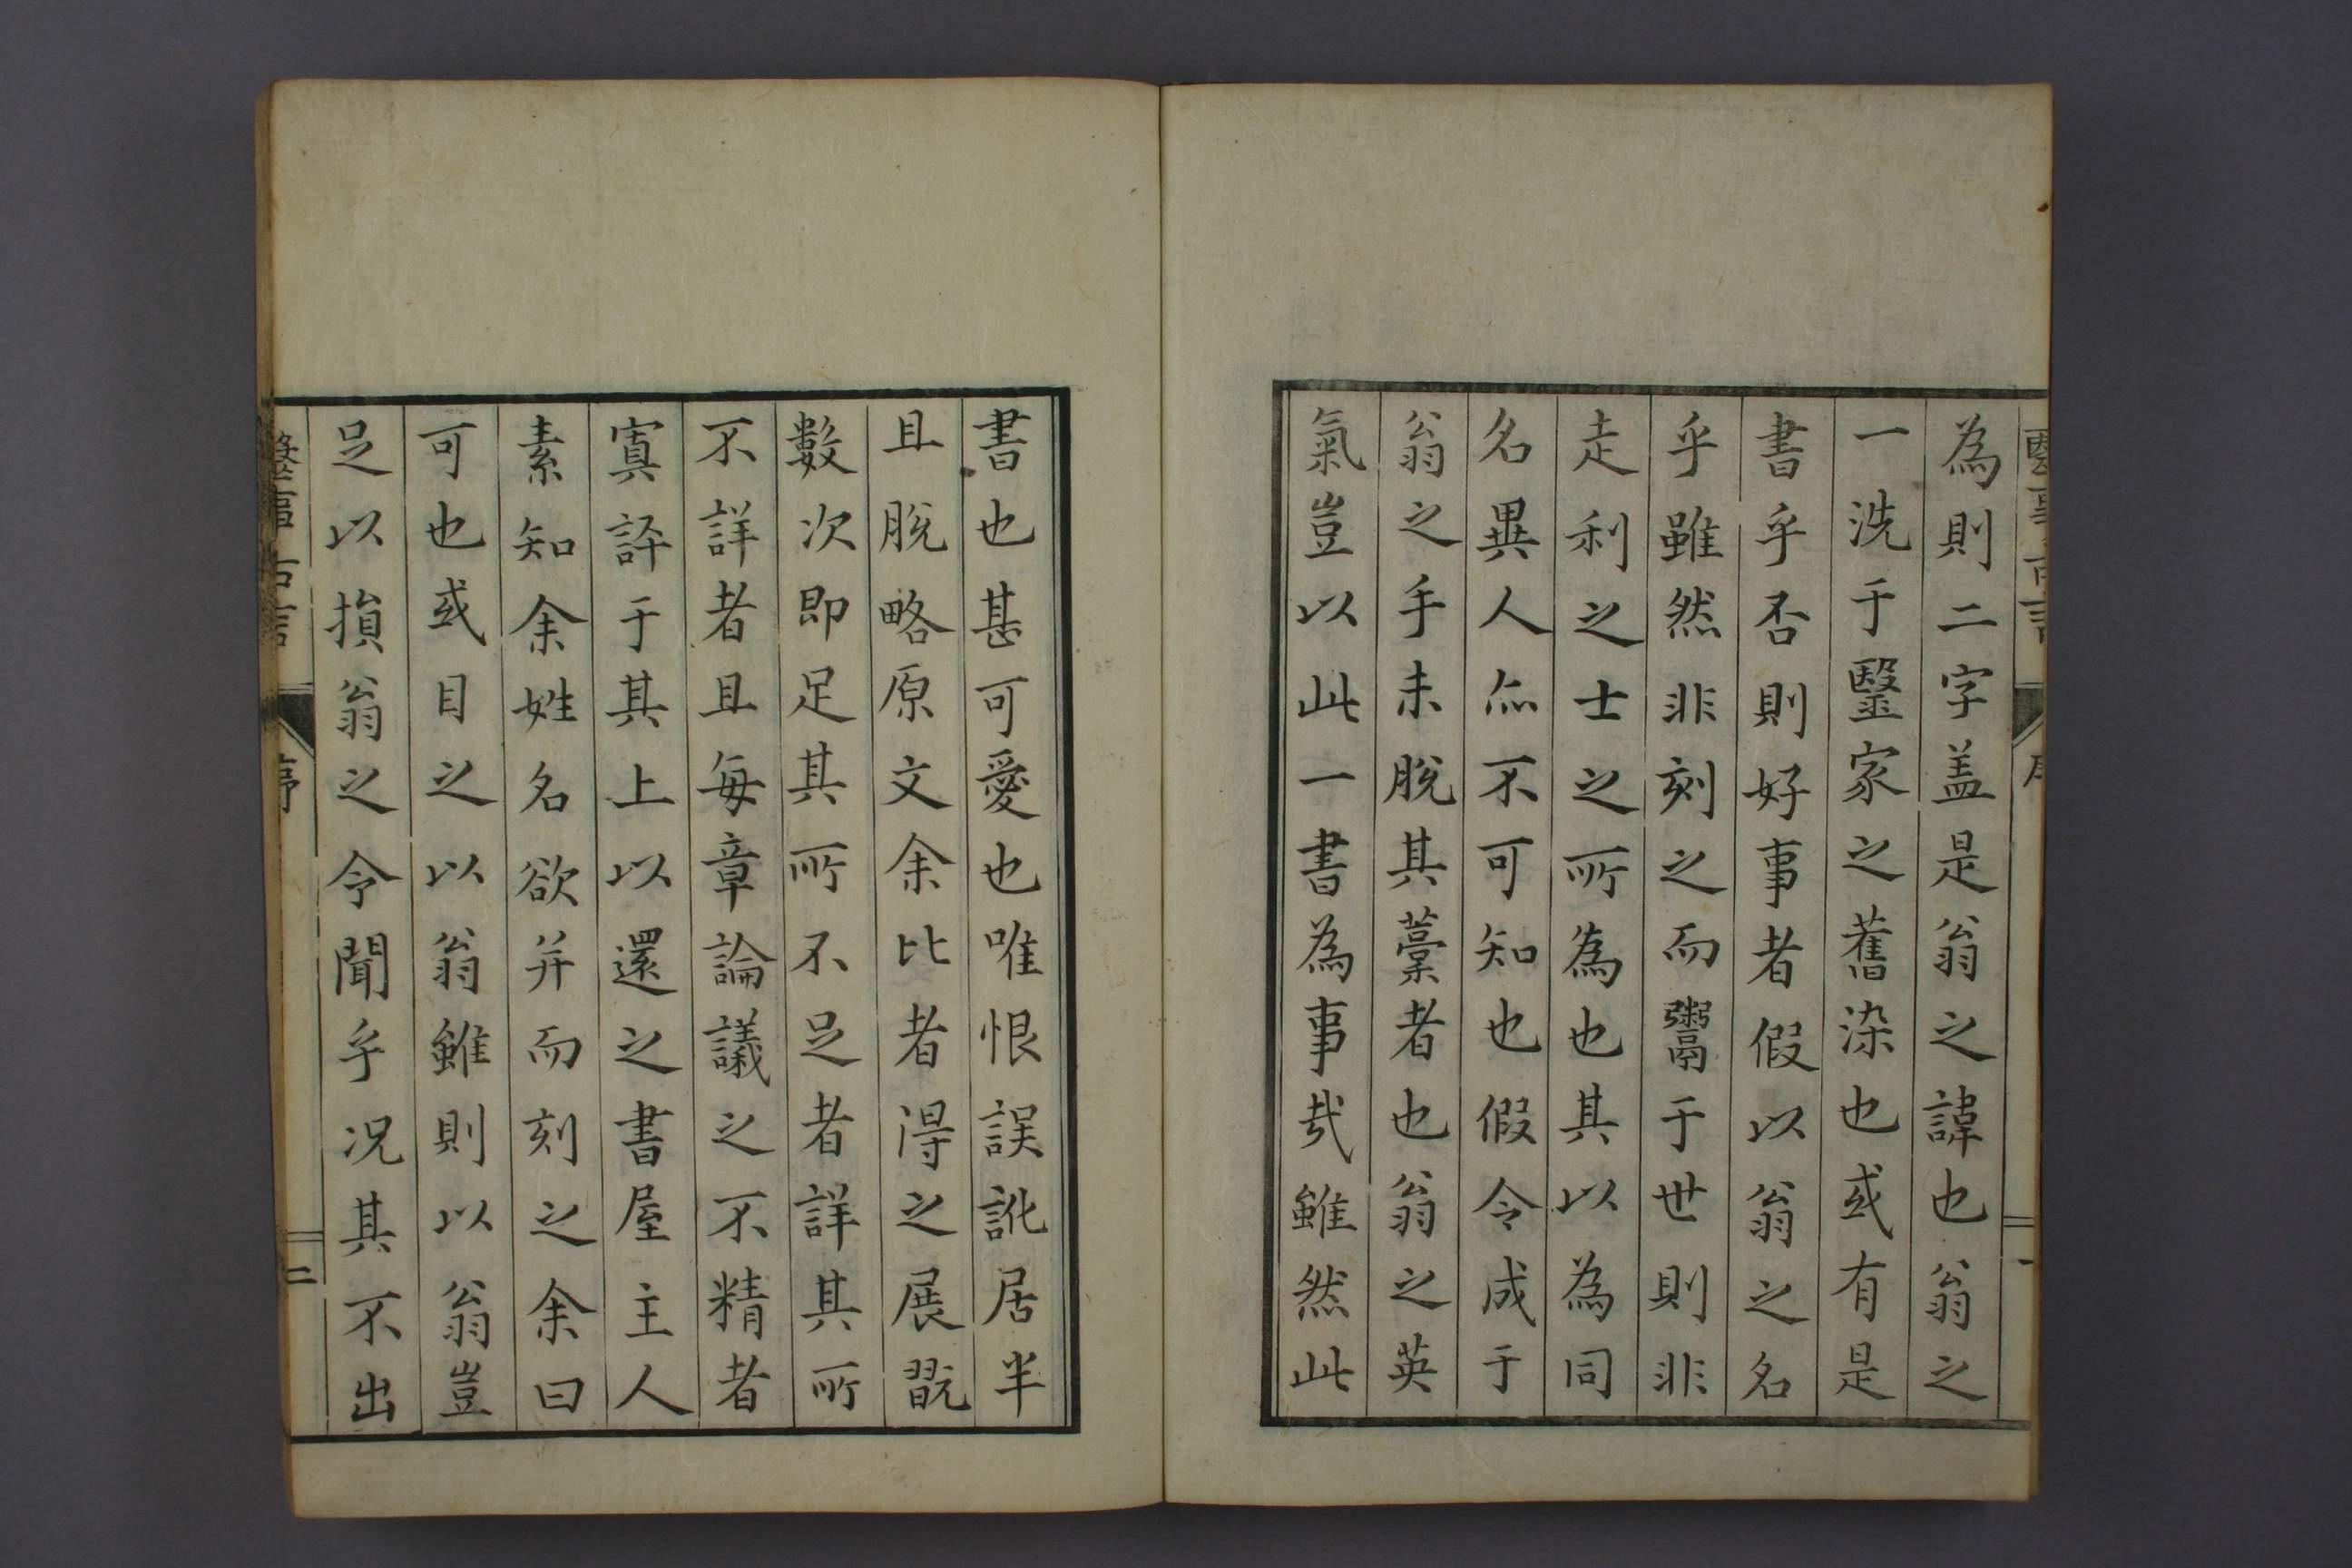 為則二字盖是翁之諱也翁之
一洗于毉家之舊染也或有是
書乎否則好事者假以翁之名
乎雖然非刻之而鬻于世則非
走利之士之所為也其以為同
名異人亦不可知也假令成于
翁之手未脫其藁者也翁之英
氣豈以此一書為事哉雖然此
書也甚可愛也唯恨誤訛居半
且脫略原文余比者得之展翫
數次即足其所不足者詳其所
不詳者且每章論議之不精者
寘評于其上以還之書屋主人
素知余姓名欲并而刻之余曰
可也或目之以翁雖則以翁豈
足以損翁之令聞乎况其不出
醫事古言
序
二